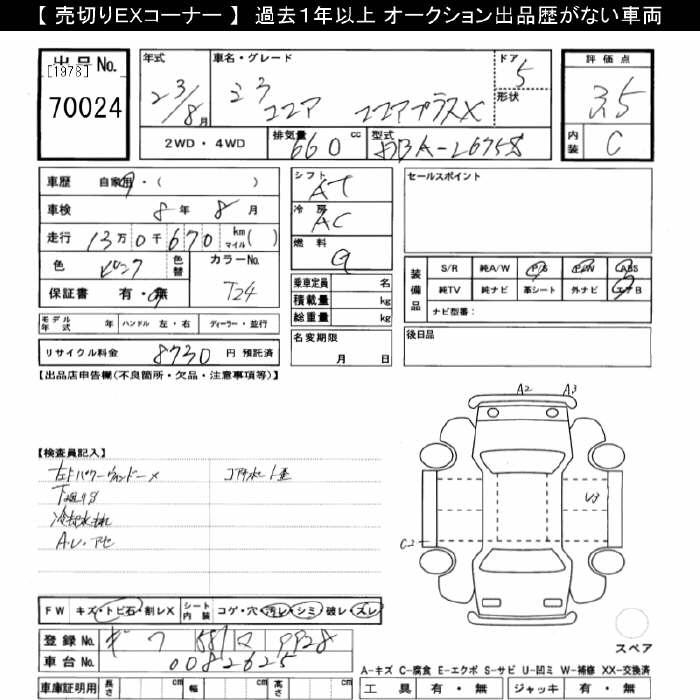 【 売切りEXコーナー 】 過去1年以上 オークション出品歴がない車両
出品No.
[1978]
70024
年式
23/8月
車名・グレード
ミラ
ココア ココアプラスX
ドア
5
形状
評価点
3.5
内装
C
2WD・4WD
排気量
660 cc
型式
DBA-L675S
車歴 自家用・( )
車検 8年 8月
走行 13万0千670 km マイル( )
色 ピンク
色替
カラーNo.
T24
保証書 有・無
モデル年式 年
ハンドル 左・右
ディーラー・並行
リサイクル料金 8730 円 預託済
シフト
AT
冷房
AC
燃料
G
乗車定員 名
積載量 kg
総重量 kg
名変期限
月 日
セールスポイント
装備品
S/R 純A/W P/S P/W ABS
純TV 純ナビ 革シート 外ナビ エアB
ナビ型番:
後日品
【出品店申告欄(不良箇所・欠品・注意事項等)】
【検査員記入】
左トパワーウィンドー×
下廻りS
冷却水もれ
A.V.アセ
A2 A3
U3
C2
FW キズ・トビ石・割レX
シート内装 コゲ・穴・汚レ・シミ・破レ・スレ
登録No.
581
車台No.
0082625
車庫証明用 長さ cm 幅 cm 高さ cm
スペア
A-キズ C-腐食 E-エクボ S-サビ U-凹ミ W-補修 XX-交換済
工具 有・無 ジャッキ 有・無